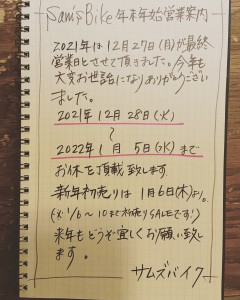 Sam's Bike 年末年始営業案内
2021年は12月27日(月)が最終
営業日とさせて頂きました。今年も
大変お世話になりありがとうござい
ました。
2021年12月28日(火)
〜
2022年1月5日(水)まで
お休を頂戴致します
新年初売りは1月6日(木)より。
(※1/6〜10まで初売りSALEです!)
来年もどうぞ宜しくお願い致し
ます。
サムズバイク